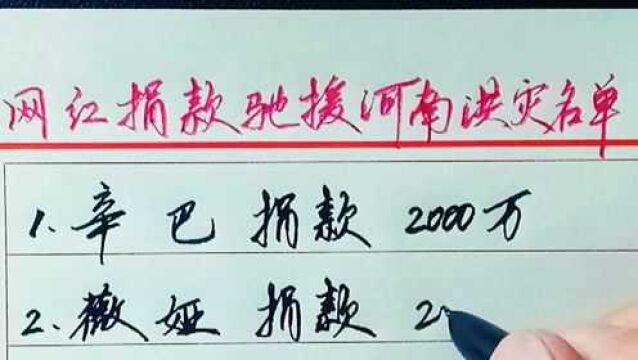 网红捐款驰援河南洪灾名单
1.辛巴捐款2000万
2.薇娅捐款2